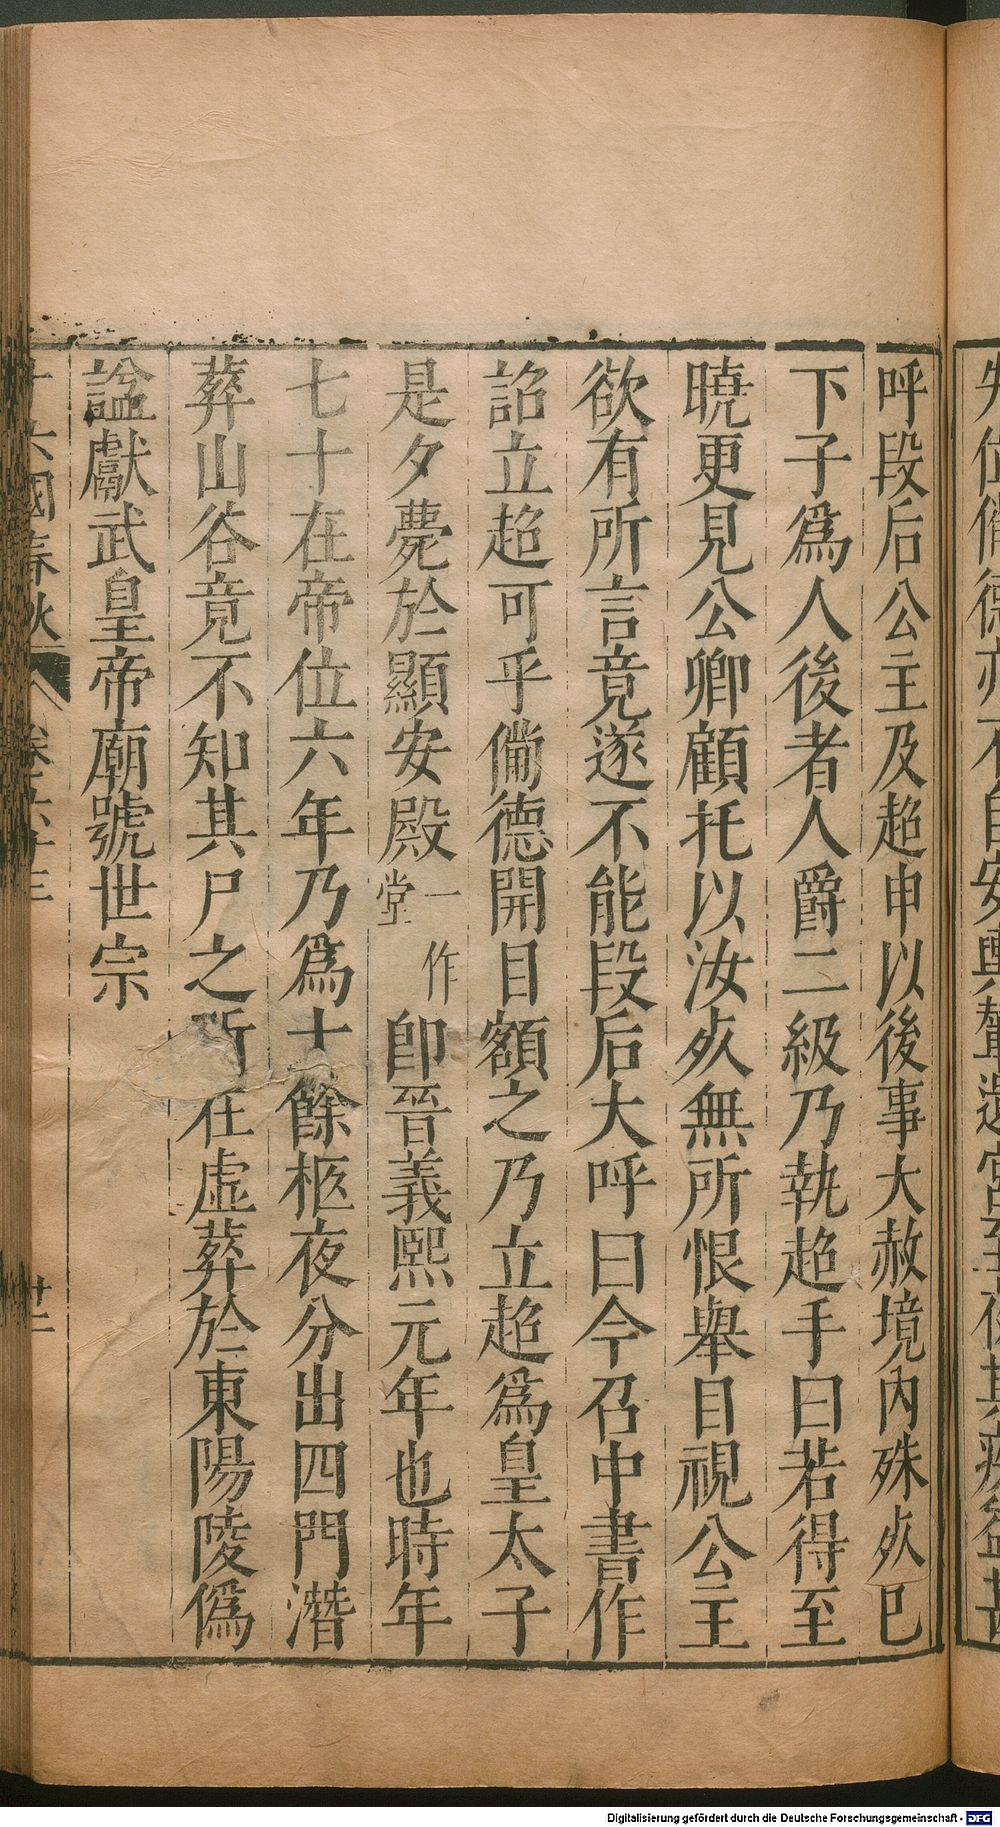 呼段后公主及超申以後事大赦境内殊死已
下子爲人後者人爵二級乃執超手曰若得至
曉更見公卿顧托以汝死無所恨舉目視公主
欲有所言竟遂不能段后大呼曰今召中書作
詔立超可乎備德開目額之乃立超爲皇太子
是夕薨於顯安殿一作堂即晉義熙元年也時年
七十在帝位六年乃爲十餘柩夜分出四門潛
葬山谷竟不知其尸之所在虛葬於東陽陵僞
諡獻武皇帝廟號世宗
十六國春秋 卷六十三 廿二
Digitalisierung gefördert durch die Deutsche Forschungsgemeinschaft - DFG